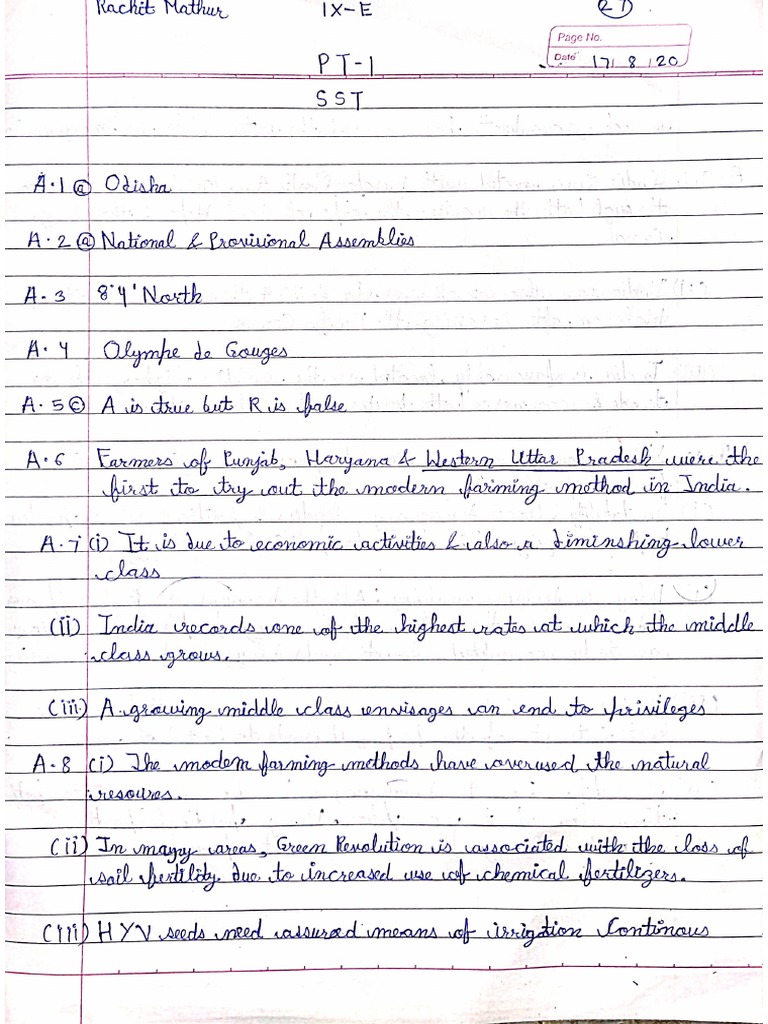 Rachit Mathur IX-E 27
Page No.
Date 17/8/20
PT-1
SST
A.1 (a) Odisha
A.2 (a) National & Provisional Assemblies
A.3 8°4' North
A.4 Olympe de Gouges
A.5 (c) A is true but R is false
A.6 Farmers of Punjab, Haryana & Western Uttar Pradesh were the
first to try out the modern farming method in India.
A.7 (i) It is due to economic activities & also a diminshing lower
class
(ii) India records one of the highest rates at which the middle
class grows.
(iii) A growing middle class envisages an end to privileges
A.8 (i) The modern farming methods have overused the natural
resoures.
(ii) In many areas, Green Revolution is associated with the loss of
soil fertility due to increased use of chemical fertilizers.
(iii) HYV seeds need assured means of irrigtion Continous